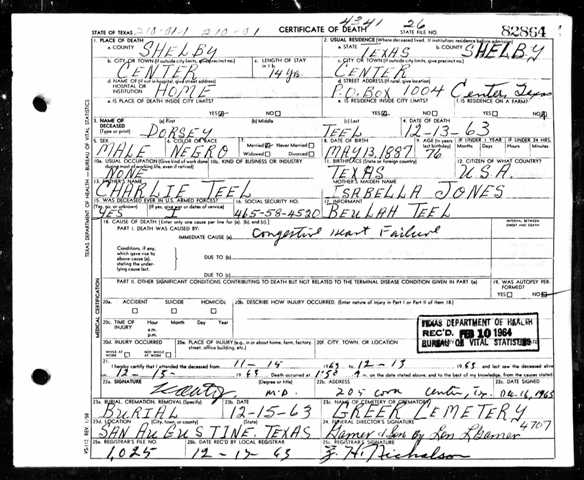 4341 26
STATE OF TEXAS 210-01-1 210-01 CERTIFICATE OF DEATH STATE FILE NO. 82864
1. PLACE OF DEATH 2. USUAL RESIDENCE (Where deceased lived. If institution: residence before admission)
a. COUNTY SHELBY a. STATE TEXAS b. COUNTY SHELBY
b. CITY OR TOWN (If outside city limits, give precinct no.) c. LENGTH OF STAY c. CITY OR TOWN (If outside city limits, give precinct no.)
CENTER 14 yrs CENTER
d. NAME OF (If not in hospital, give street address) d. STREET ADDRESS (If rural, give location)
HOSPITAL OR INSTITUTION HOME P.O. BOX 1004 Center, Texas
e. IS PLACE OF DEATH INSIDE CITY LIMITS? e. IS RESIDENCE INSIDE CITY LIMITS? f. IS RESIDENCE ON A FARM?
YES NO YES NO YES NO
3. NAME OF DECEASED (Type or print) (a) First (b) Middle (c) Last 4. DATE OF DEATH
DORSEY TEEL 12-13-63
5. SEX 6. COLOR OR RACE 7. Married Never Married Widowed Divorced 8. DATE OF BIRTH 9. AGE (In years last birthday) IF UNDER 1 YEAR IF UNDER 24 HRS.
MALE NEGRO MAY 13, 1887 76
10a. USUAL OCCUPATION (Give kind of work done during most of working life, even if retired) 10b. KIND OF BUSINESS OR INDUSTRY 11. BIRTHPLACE (State or foreign country) 12. CITIZEN OF WHAT COUNTRY?
NONE TEXAS U.S.A.
13. FATHER'S NAME 14. MOTHER'S MAIDEN NAME
CHARLIE TEEL ISABELLA JONES
15. WAS DECEASED EVER IN U.S. ARMED FORCES? 16. SOCIAL SECURITY NO. 17. INFORMANT
YES 465-58-4520 BEULAH TEEL
18. CAUSE OF DEATH [Enter only one cause per line for (a), (b), and (c).] INTERVAL BETWEEN ONSET AND DEATH
PART I. DEATH WAS CAUSED BY:
IMMEDIATE CAUSE (a) Congestive Heart Failure
Conditions, if any, which gave rise to above cause (a), stating the underlying cause last.
DUE TO (b)
DUE TO (c)
PART II. OTHER SIGNIFICANT CONDITIONS CONTRIBUTING TO DEATH BUT NOT RELATED TO THE TERMINAL DISEASE CONDITION GIVEN IN PART I(a) 19. WAS AUTOPSY PERFORMED?
YES NO
20a. ACCIDENT SUICIDE HOMICIDE 20b. DESCRIBE HOW INJURY OCCURRED. (Enter nature of injury in Part I or Part II of item 18.)
20c. TIME OF INJURY Hour Month Day Year
a.m.
p.m.
TEXAS DEPARTMENT OF HEALTH
REC'D. FEB 10 1964
BUREAU OF VITAL STATISTICS
20d. INJURY OCCURRED WHILE AT WORK NOT WHILE AT WORK 20e. PLACE OF INJURY (e.g., in or about home, farm, factory, street, office building, etc.) 20f. CITY, TOWN, OR LOCATION COUNTY STATE
21. I hereby certify that I attended the deceased from 11-15 1963 to 12-13 1963 and last saw the deceased alive
on 12-13- 1963 Death occurred at m. on the date stated above, and to the best of my knowledge, from the causes stated.
22a. SIGNATURE (Degree or title) 22b. ADDRESS 22c. DATE SIGNED
M.D. Center, Tex. Dec. 16, 1963
23a. BURIAL, CREMATION, REMOVAL (Specify) 23b. DATE 23c. NAME OF CEMETERY OR CREMATORY
BURIAL 12-15-63 GREER CEMETERY
23d. LOCATION (City, town, or county) (State) 24. FUNERAL DIRECTOR'S SIGNATURE 4707
SAN AUGUSTINE, TEXAS
25a. REGISTRAR'S FILE NO. 25b. DATE REC'D BY LOCAL REGISTRAR 25c. REGISTRAR'S SIGNATURE
1,025 12-17-63 Z. H. Nicholson
TEXAS DEPARTMENT OF HEALTH — BUREAU OF VITAL STATISTICS
MEDICAL CERTIFICATION
VS-112 REV. 1/58